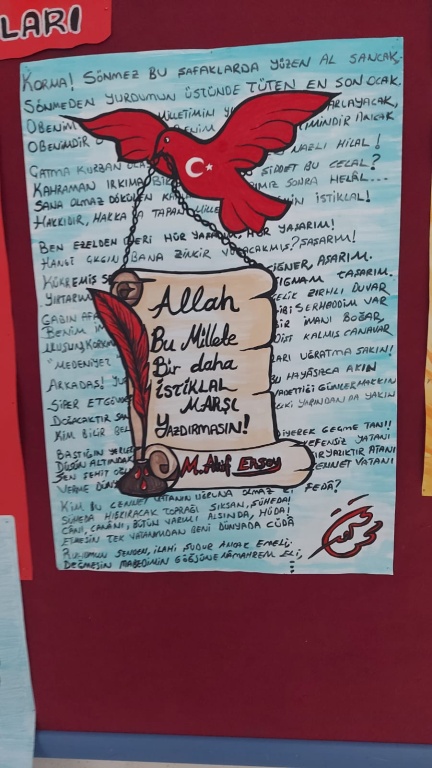 LARI
KORMA! SÖNMEZ BU ŞAFAKLARDA YÜZEN AL SANCAK,
SÖNMEDEN YURDUMUN ÜSTÜNDE TÜTEN EN SON OCAK.
O BENİM MİLLETİMİN YI ARLAYACAK,
O BENİMDİR BENİM İMİNDİR ANCAK
ÇATMA KURBAN OLA NAZLI HİLAL!
KAHRAMAN IRKIMA BİR ŞİDDET BU CELAL?
SANA OLMAZ DÖKÜLEN KA IMIZ SONRA HELÂL...
HAKKIDIR, HAKK'A TAPAN MİLLE İN İSTİKLAL!
BEN EZELDEN BERİ HÜR YAŞADIM, HÜR YAŞARIM!
HANGİ ÇILGIN BANA ZİNCİR VURACAKMIŞ? ŞAŞARIM!
KÜKREMİŞ S İĞNER, AŞARIM.
YIRTARIM IĞMAM TAŞARIM.
GARBIN AFA ÇELİK ZIRHLI DUVAR
BENİM İM İBİ SERHADDİM VAR
ULUSUN, KORKM BİR İMANI BOĞAR,
"MEDENİYET DİŞİ KALMIŞ CANAVAR
ARKADAŞ! YU LARI UĞRATMA SAKIN!
SİPER ET GÖV BU HAYASIZCA AKIN
DOĞACAKTIR SA VADETTİĞİ GÜNLER HAKKIN
KİM BİLİR BE BELKİ YARINDAN DA YAKIN
BASTIĞIN YERLE DİYEREK GEÇME TAN!!
DÜŞÜN ALTINDAK KEFENSİZ YATANI
SEN ŞEHİT OĞL YAZIKTIR ATANI
VERME DÜNY CENNET VATANI
Allah
Bu Millete
Bir daha
İSTİKLAL
MARŞI
YAZDIRMASIN!
M. Akif Ersoy
KİM BU CENNET VATANIN UĞRUNA OLMAZ Kİ FEDÂ?
ŞÜHEDA FIŞKIRACAK TOPRAĞI SIKSAN, ŞÜHEDA!
CÂNI, CANÂNI, BÜTÜN VARIMI ALSINDA, HÜDA!
ETMESİN TEK VATANIMDAN BENİ DÜNYADA CÜDÂ
RUHUMUN SENDEN, İLAHİ ŞUDUR ANCAK EMELİ:
DEĞMESİN MABEDİMİN GÖĞSÜNE NÂMAHREM ELİ,